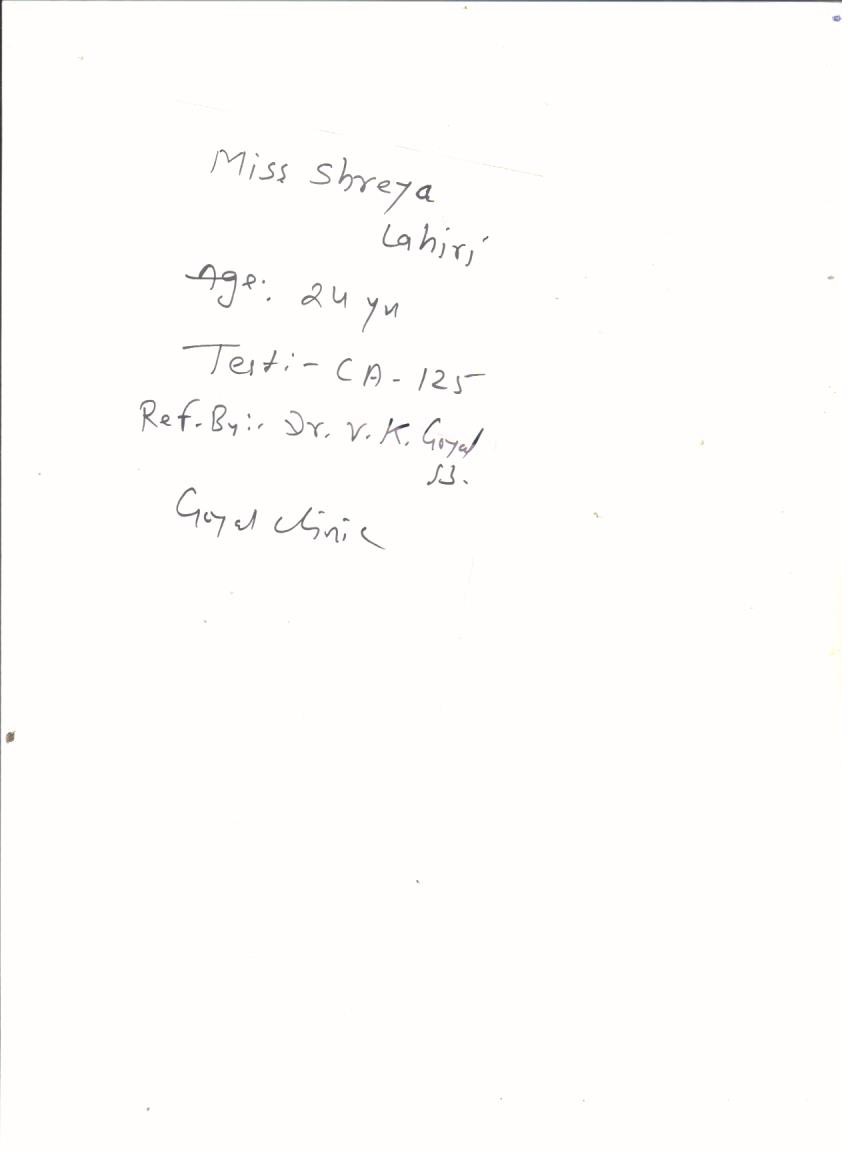 Miss Shreya
Lahiri
Age:. 24 yr
Test:- CA-125
Ref. By:. Dr. V. K. Goyal
Goyal clinic